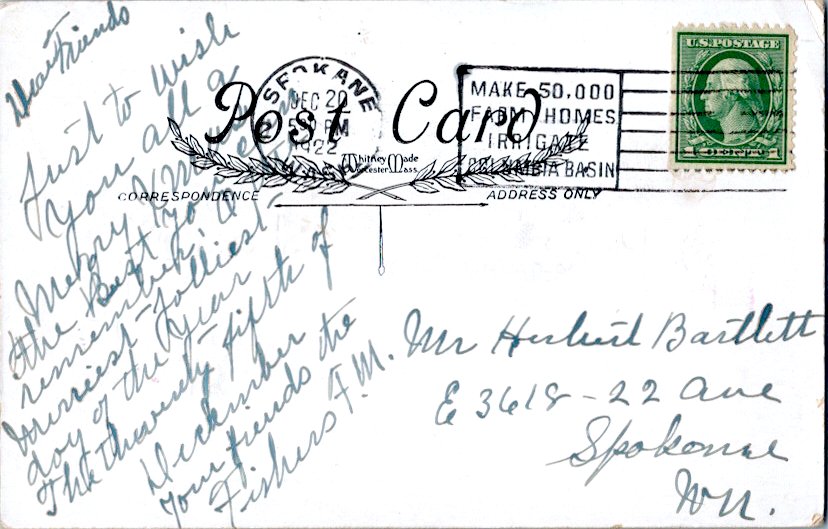 Dear Friends
Just to wish
you all a
Merry Xmas
the Best to
remember
merriest Jolliest
day of the year
The Thwenty Fifth of
Deckember
your friends the
Fishers F.M.
SPOKANE
DEC 20
PM
1922
WASH
Post Card
Whitney Made
Worcester, Mass.
CORRESPONDENCE
ADDRESS ONLY
MAKE 50,000
FARM HOMES
IRRIGATE
COLUMBIA BASIN
U.S. POSTAGE
1 CENT 1
Mr Herbert Bartlett
E 3618-22 ave
Spokane
Wn.